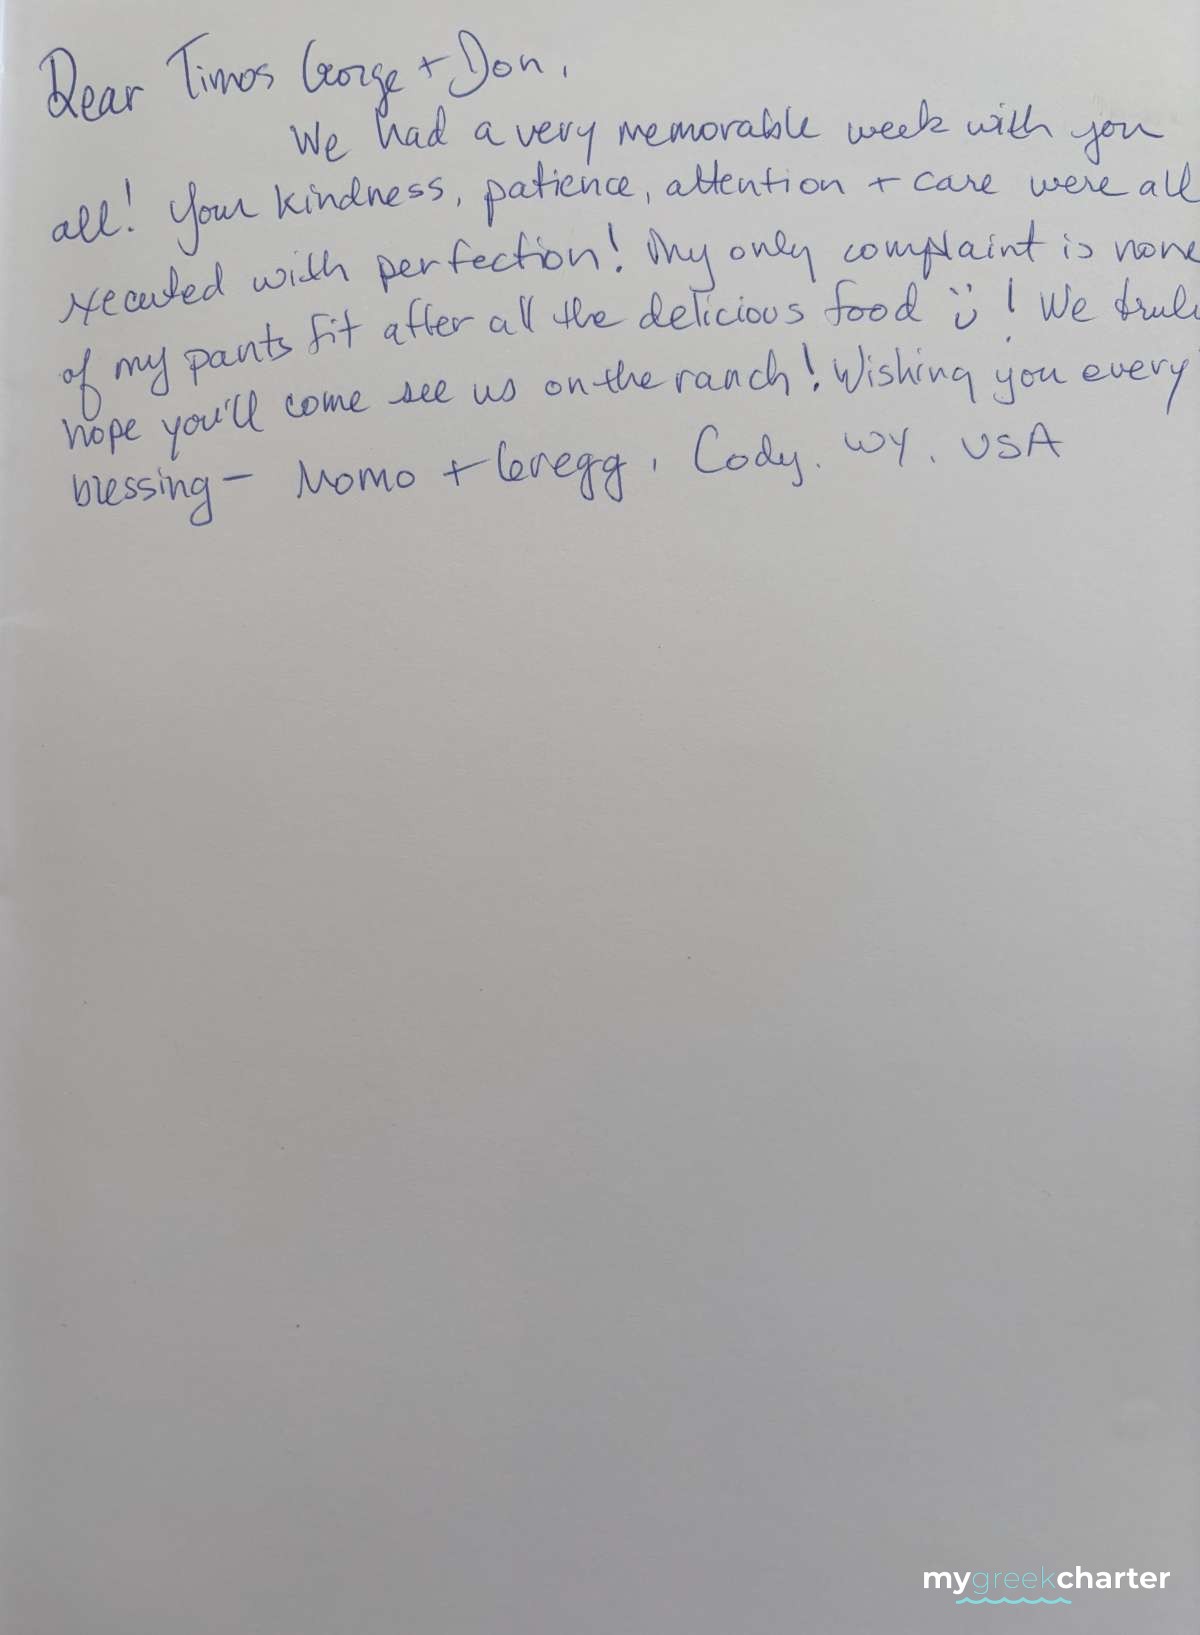 Dear Timos George + Don,
We had a very memorable week with you
all! Your kindness, patience, attention + care were all
xecuted with perfection! My only complaint is none
of my pants fit after all the delicious food :) ! We trul
hope you'll come see us on the ranch! Wishing you every
blessing - Momo + Gregg, Cody, WY, USA
mygreekcharter